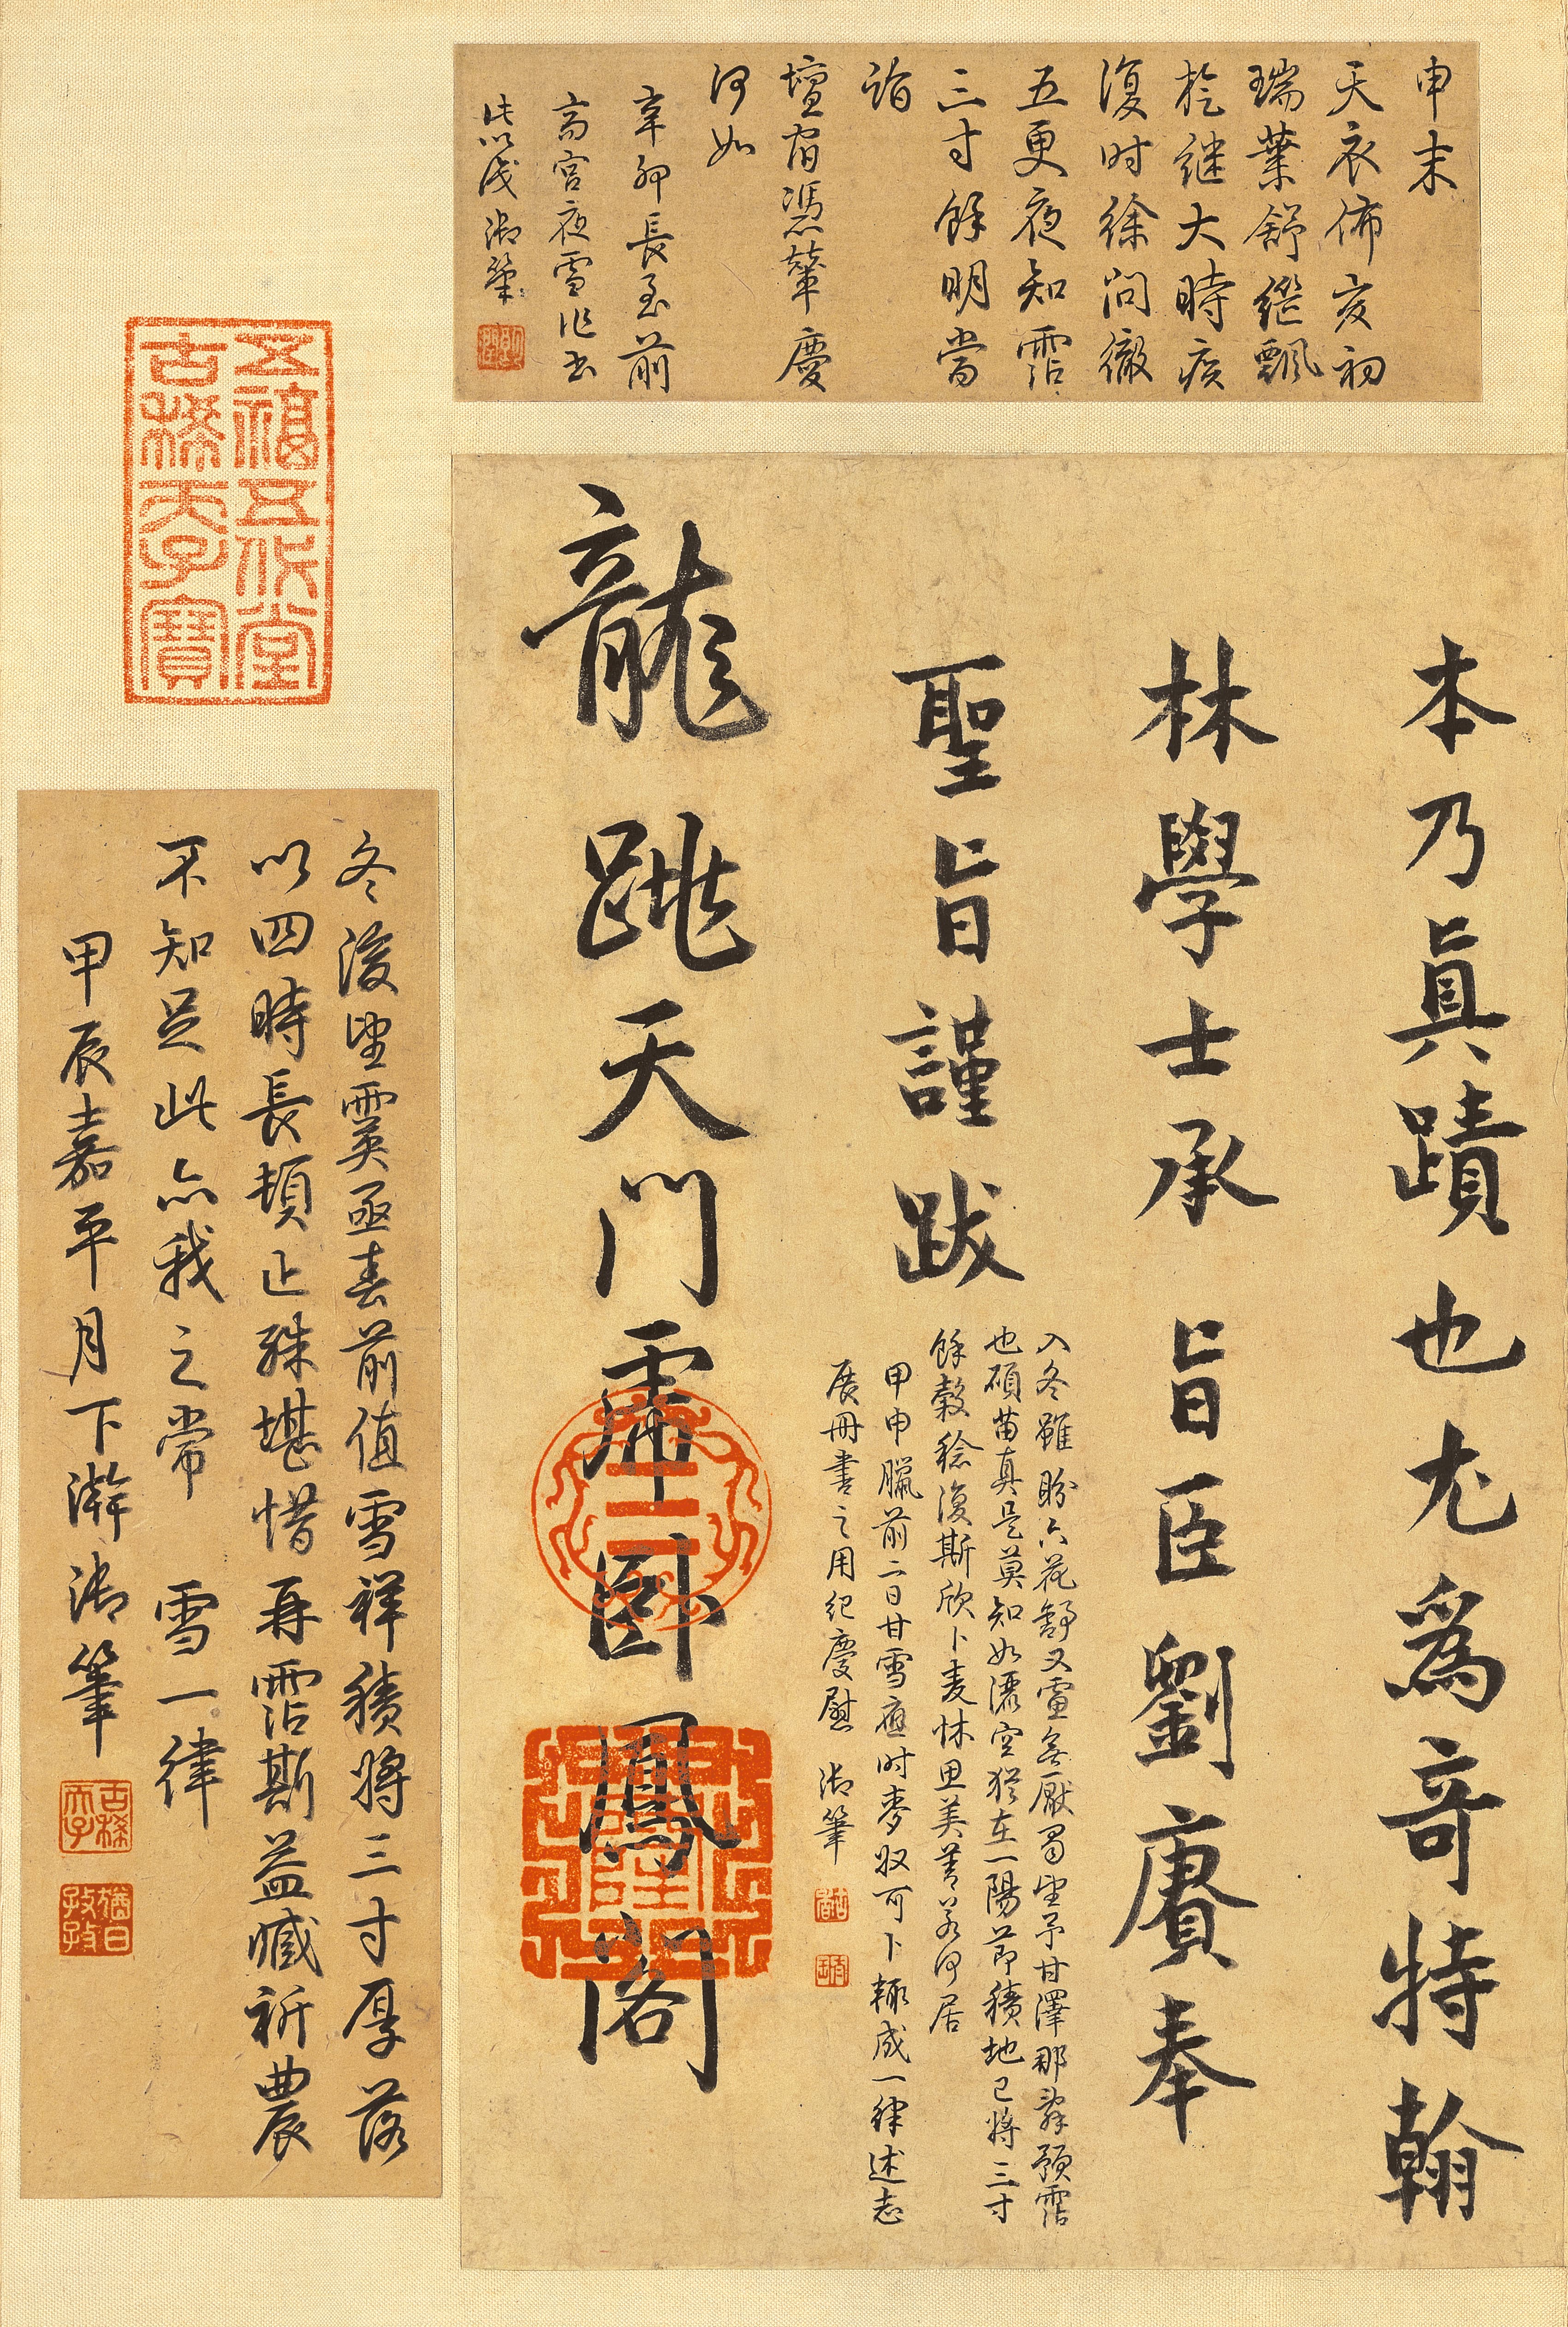 申末
天衣佈亥初
瑞葉舒繼飄
於繼大時疾
復時徐問徹
五更夜知霑
三寸餘明當
詣
壇宿憑輦慶
何如
辛卯長至前
齋宮夜雪作書
以識御筆
本乃真蹟也尤為奇特翰
林學士承旨臣劉賡奉
聖旨謹跋
入冬雖盼六花舒又慮無厭蜀望予甘澤那辭預霑
也碩苗真是莫知如濃空猶在一陽節積地已將三寸
餘穀稔復斯欣卜麥怵思美善若何居
甲申臘前二日甘雪應時麥收可卜輒成一律述志
展冊書之用紀慶慰 御筆
龍跳天門虎臥鳳閣
乾隆
五福五代堂
古稀天子寶
冬後望霙亟春前值雪祥積將三寸厚落
以四時長頓止殊堪惜再霑斯益臧祈農
不知足此亦我之常 雪一律
甲辰嘉平月下澣御筆
古稀天子
猶日孜孜